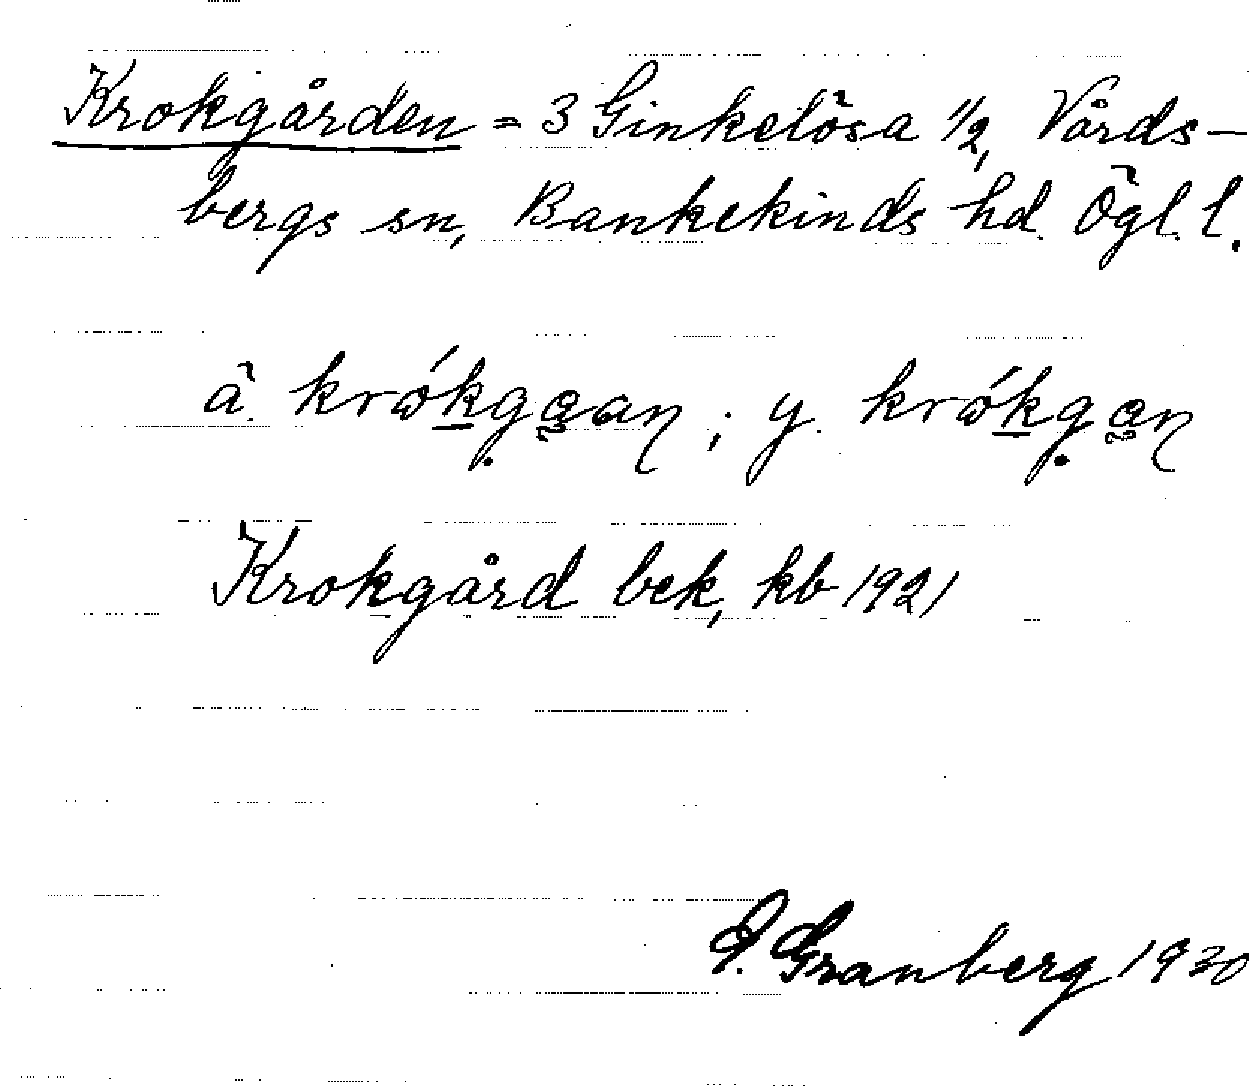 Krokgården = 3 Ginkelösa 1/2, Vårds-
bergs sn, Bankekinds hd. Ögl. l.
ä. krókga̰an ; y. krókga̰n
Krokgård bek, kb 1921
G. Granberg 1930